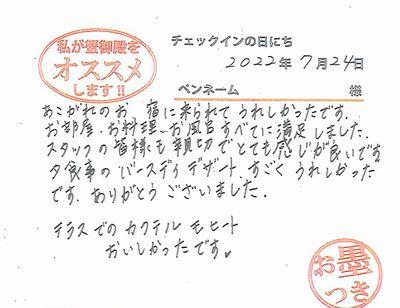 私が蟹御殿を
オススメ
します!!
チェックインの日にち
2022年7月24日
ペンネーム 様
あこがれのお 宿に来られてうれしかったです。
お部屋、お料理、お風呂すべてに満足しました。
スタッフの皆様も親切でとても感じが良いです
夕食事のバースディデザート、すごくうれしかった
です。ありがとうございました。
テラスでのカクテル モヒート
おいしかったです。
お墨
つき